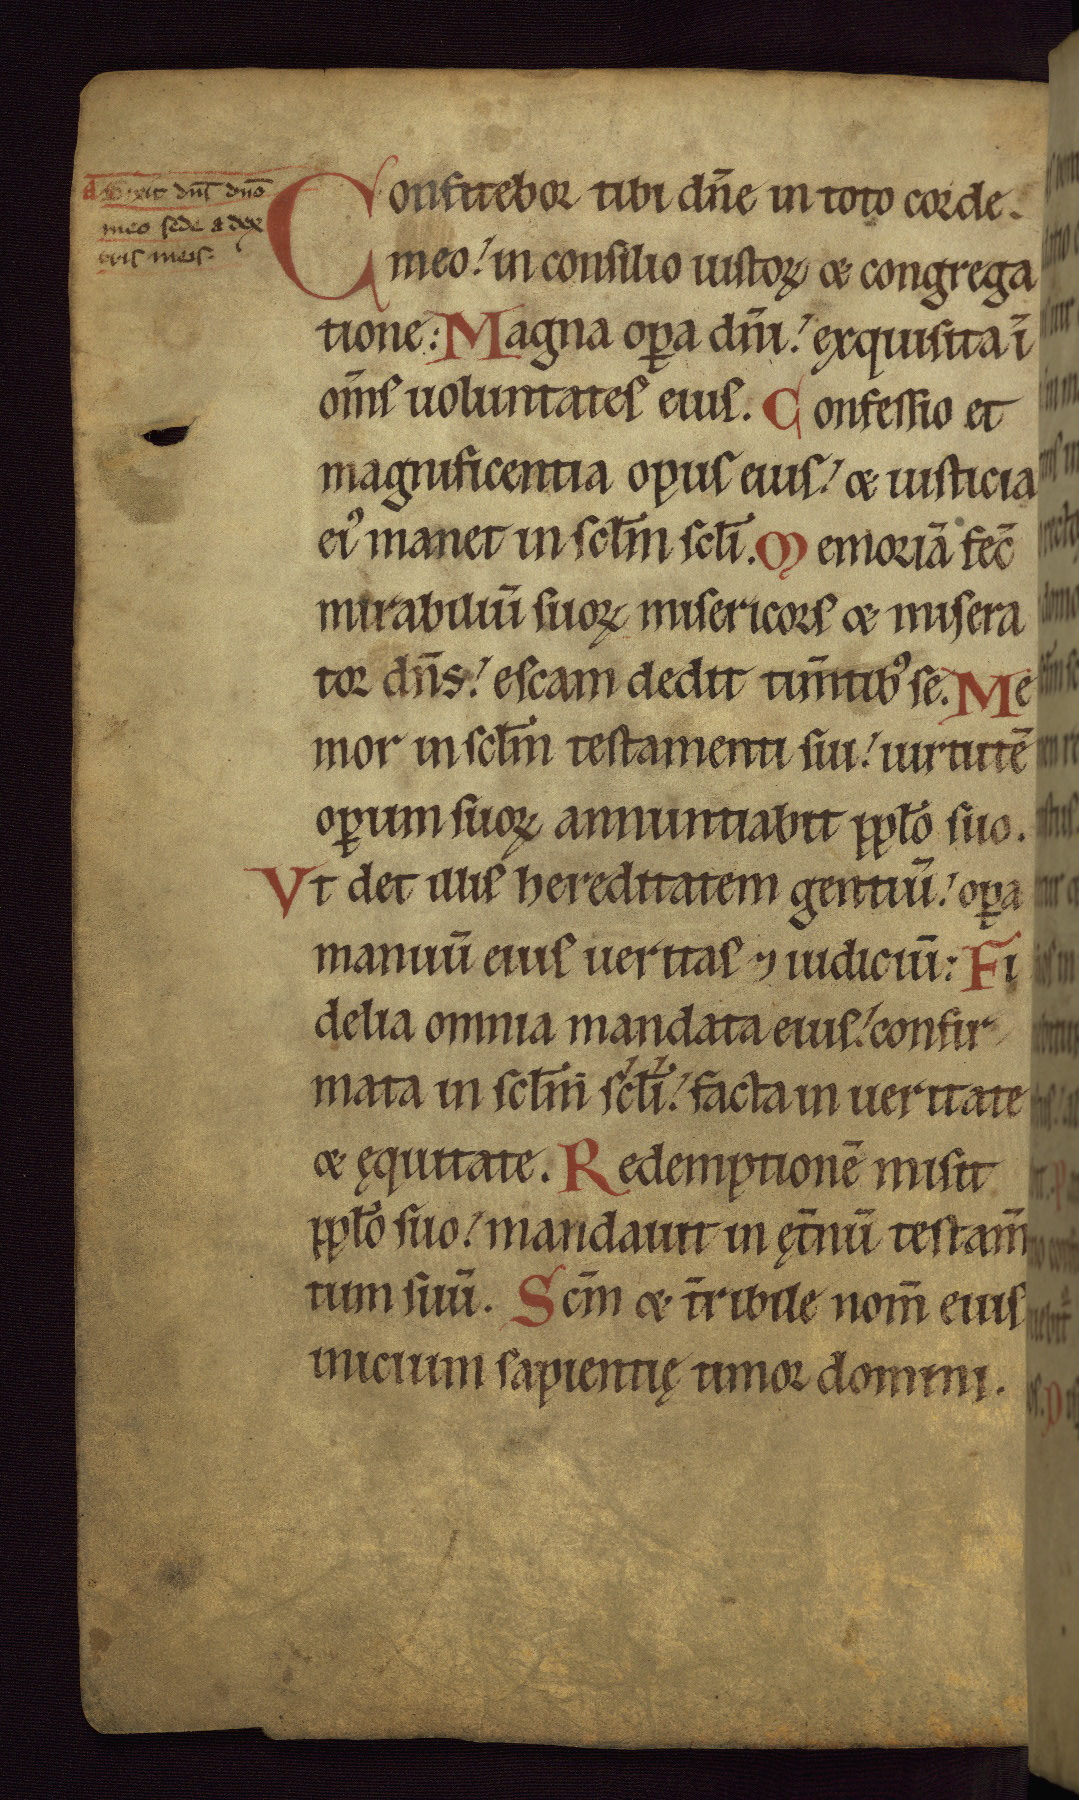 Dixit dn̄s dn̄o
meo sede a dex
tris meis.
Confitebor tibi dn̄e in toto corde
meo! in consilio iustoꝝ & congrega
tione: Magna oꝑa dn̄i! exquisita ī
om̄s uoluntates eius. Confessio et
magnificentia opus eius! & iusticia
eiꝰ manet in scl̄m scl̄i. Memoriā fec̄
mirabiliū suoꝝ misericors & misera
tor dn̄s! escam dedit tim̄tibꝰ se. Me
mor in scl̄m testamenti sui! uirtutē
oꝑum suoꝝ annuntiabit ppl̄o suo.
Vt det illis hereditatem gentiū! oꝑa
manuū eius ueritas ⁊ iudiciū: Fi
delia omnia mandata eius! confir
mata in scl̄m scl̄i! facta in ueritate
& ęquitate. Redemptionē misit
ppl̄o suo! mandauit in ęt̄nū testam̄
tum suū. Sc̄m & t̄ribile nom̄ eius
inicium sapientię timor domini.